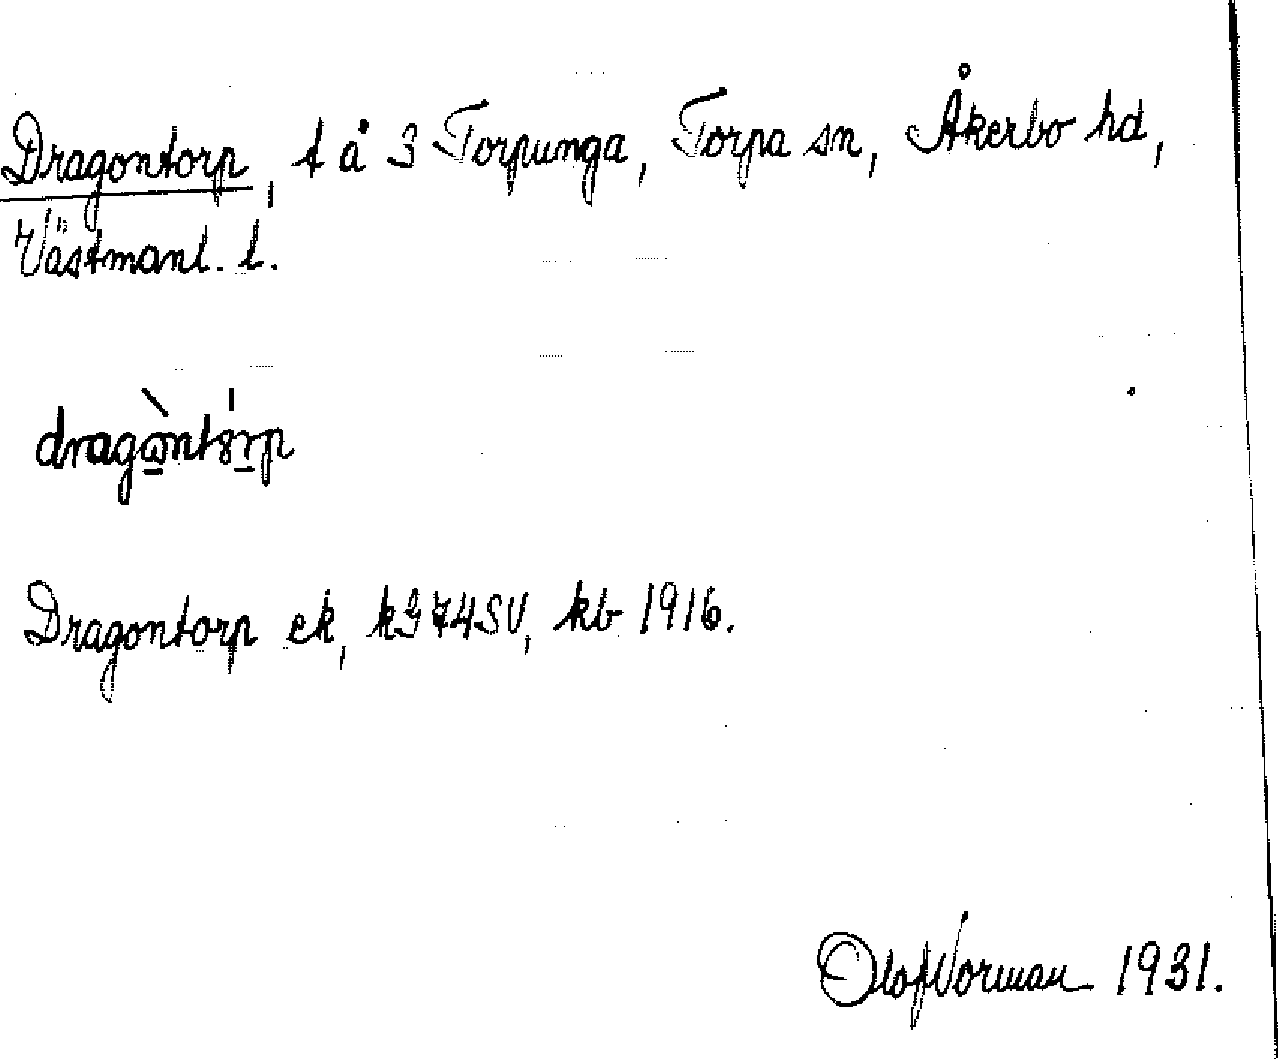 Dragontorp, t å 3 Torpunga, Torpa sn, Åkerbo hd,
Västmanl. l.
Dragontorp ek, kb 1916.
Olof Norman 1931.